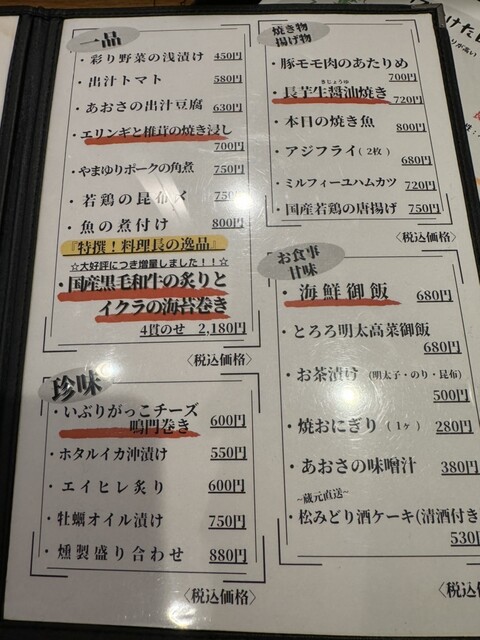 一品
・彩り野菜の浅漬け 450円
・出汁トマト 580円
・あおさの出汁豆腐 630円
・エリンギと椎茸の焼き浸し
700円
・やまゆりポークの角煮 750
・若鶏の昆布〆 750
・魚の煮付け 800円
『特撰！料理長の逸品』
☆大好評につき増量しました！！☆
・国産黒毛和牛の炙りと
イクラの海苔巻き
4貫のせ 2,180円
〈税込価格〉
珍味
・いぶりがっこチーズ
鳴門巻き 600円
・ホタルイカ沖漬け 550円
・エイヒレ炙り 600円
・牡蠣オイル漬け 750円
・燻製盛り合わせ 880円
〈税込価格〉
焼き物
揚げ物
・豚モモ肉のあたりめ
700円
きじょうゆ
・長芋生醤油焼き 720円
・本日の焼き魚 800円
・アジフライ(2枚) 680円
・ミルフィーユハムカツ 720円
・国産若鶏の唐揚げ 750円
〈税込価格〉
お食事
甘味
・海鮮御飯 680円
・とろろ明太高菜御飯
680円
・お茶漬け (明太子・のり・昆布)
500円
・焼おにぎり (1ヶ) 280円
・あおさの味噌汁 380円
~蔵元直送~
・松みどり酒ケーキ(清酒付き
530
〈税込価